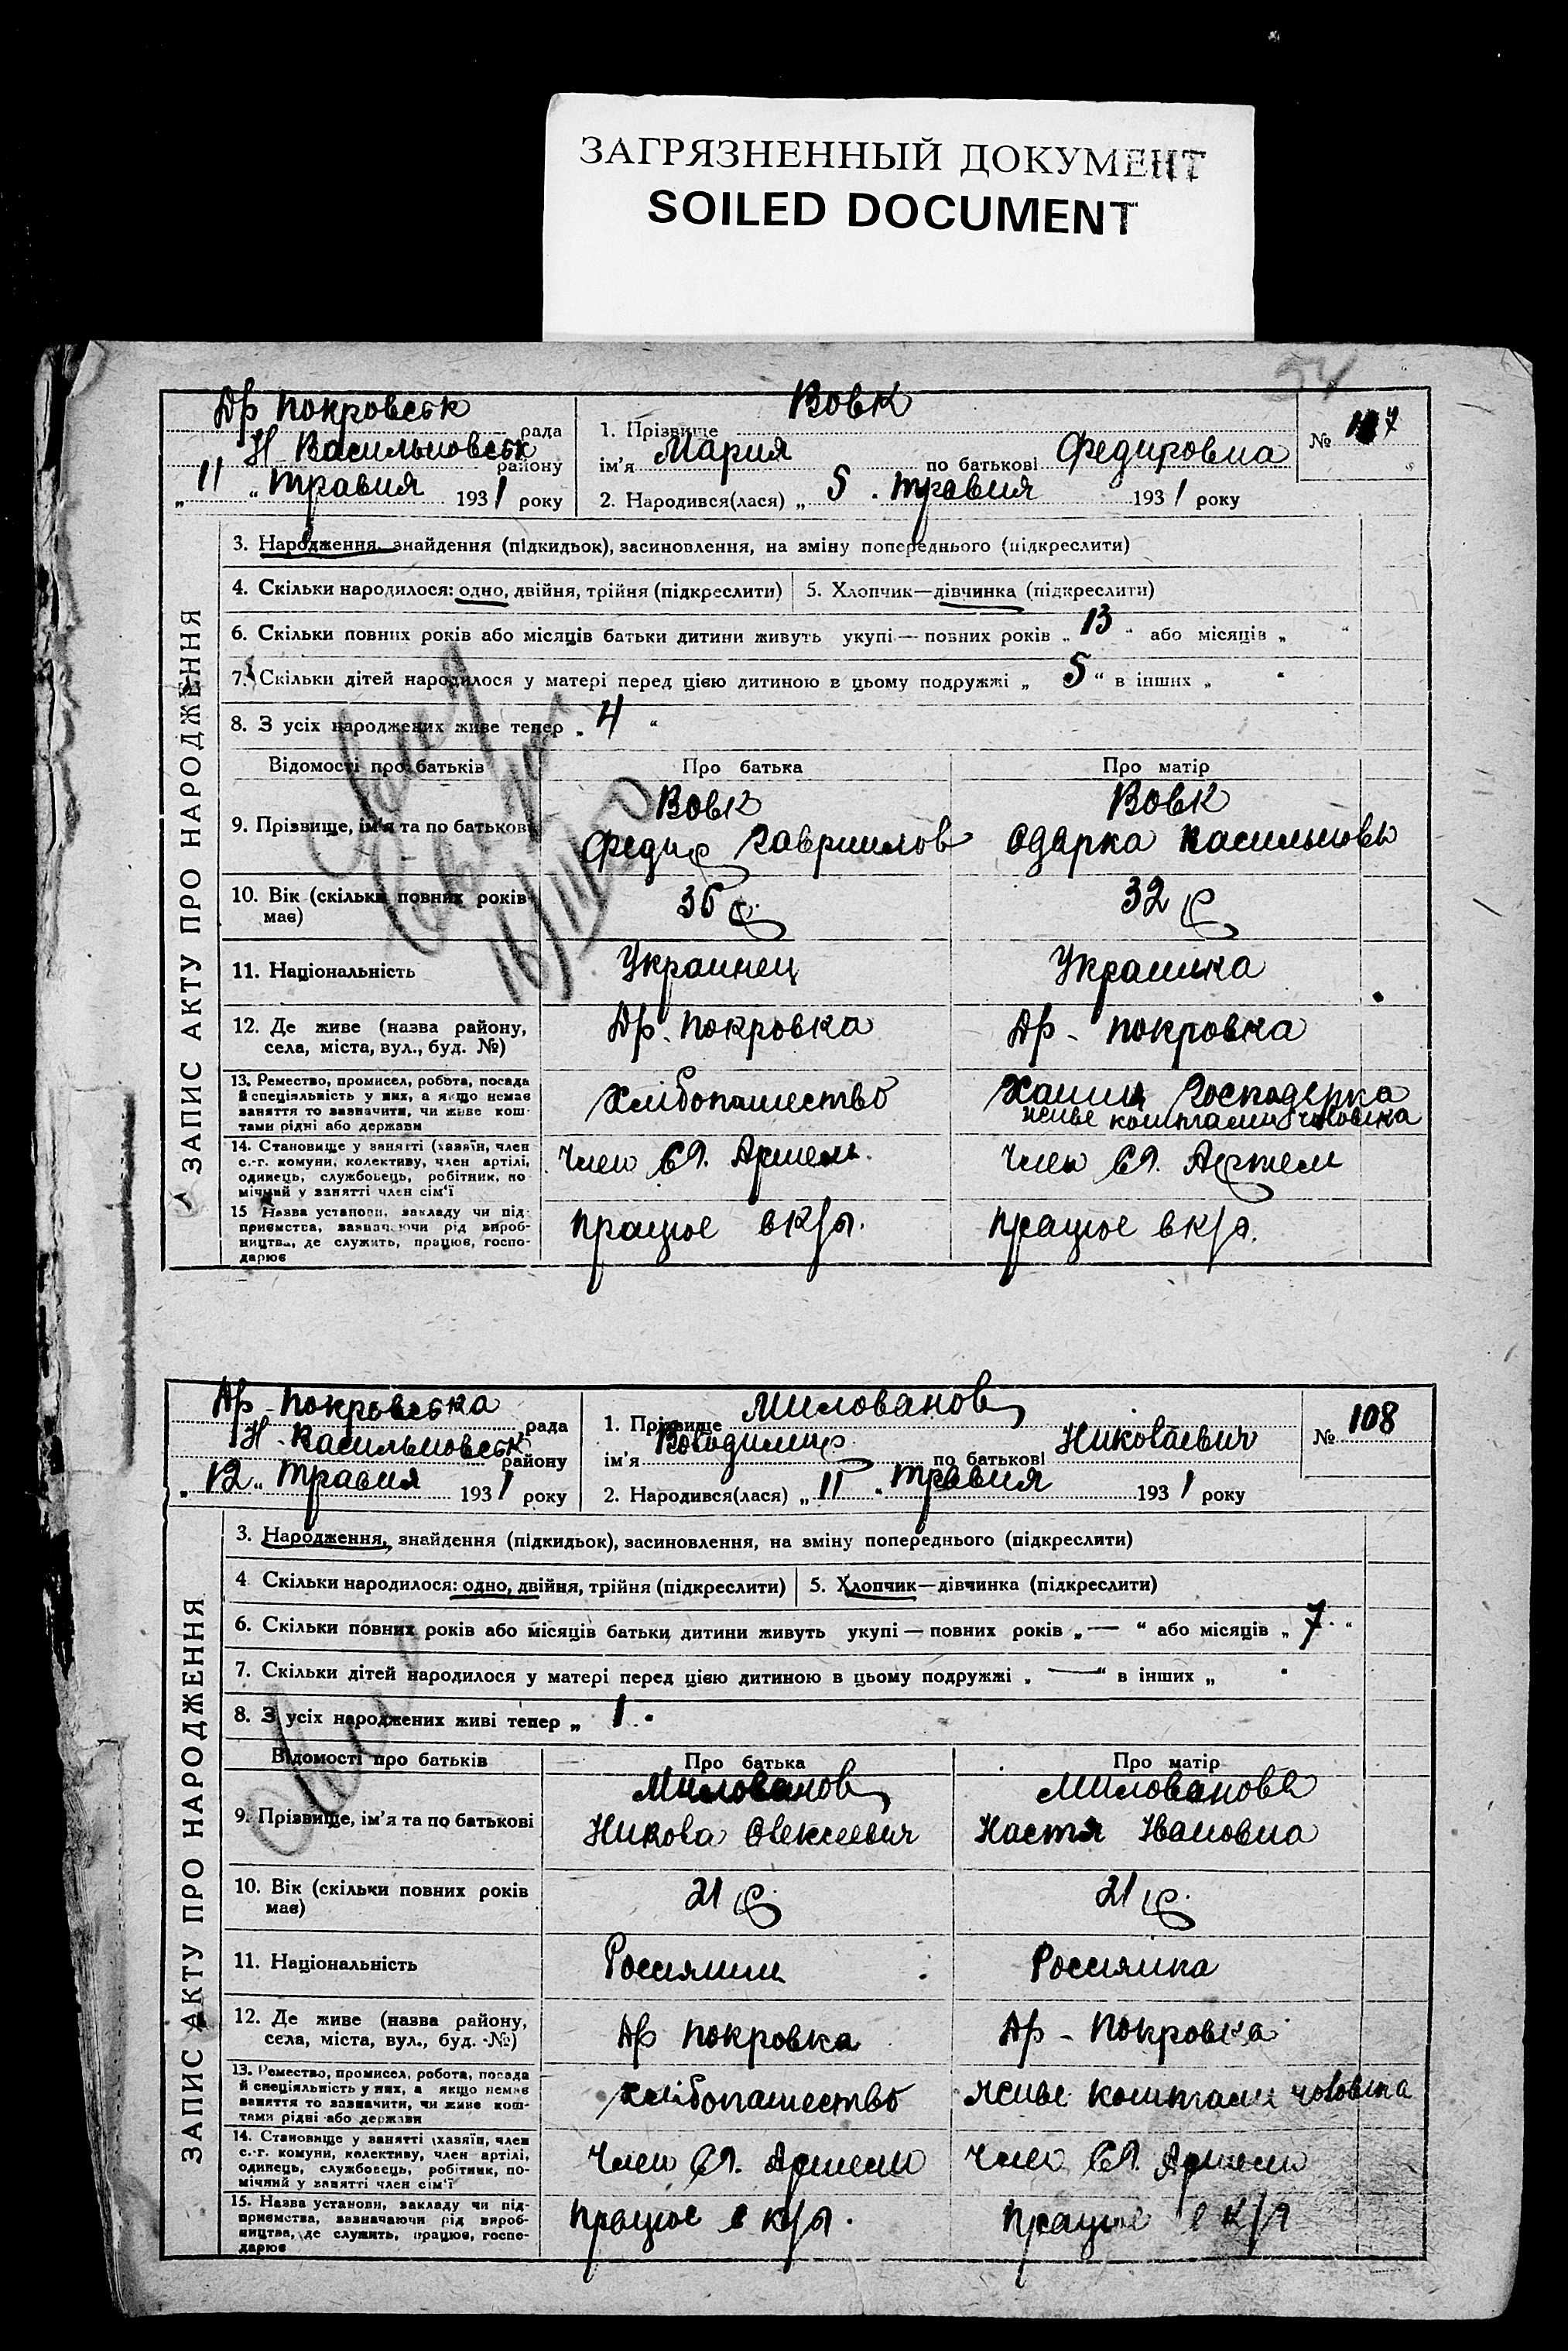 ЗАГРЯЗНЕННЫЙ ДОКУМЕНТ
SOILED DOCUMENT
54
Др Покровськ рада
Н Васильповськ району
„ 11 „ травня 1931 року
1. Прізвище Вовк
ім'я Мария по батькові Федировна
2. Народився(лася) „ 5 „ травня 1931 року
№ 107
ЗАПИС АКТУ ПРО НАРОДЖЕННЯ
3. Народження, знайдення (підкидьок), засиновлення, на зміну попереднього (підкреслити)
4. Скільки народилося: одно, двійня, трійня (підкреслити) 5. Хлопчик—дівчинка (підкреслити)
6. Скільки повних років або місяців батьки дитини живуть укупі — повних років „ 13 “ або місяців „ “
7. Скільки дітей народилося у матері перед цією дитиною в цьому подружжі „ 5 “ в інших „ “
8. З усіх народжених живе тепер „ 4 “
Відомості про батьків Про батька Про матір
9. Прізвище, ім'я та по батькові
Вовк
Федир Гавриилов
Вовк
Одарка Васильновы
10. Вік (скільки повних років має) 36 р. 32 р
11. Національність Украинец Украинка
12. Де живе (назва району,
села, міста, вул., буд. №)
Др. Покровка Др - Покровка
13. Ремество, промисел, робота, посада
й спеціяльність у них, а якщо немає
заняття то зазначити, чи живе кош-
тами рідні або держави
Хлібопашество
Хатня Господарка
живе коштами чоловика
14. Становище у занятті (хазяїн, член
с.-г. комуни, колективу, член артілі,
одинець, службовець, робітник, по
мічний у занятті член сім'ї
Член СГ. Артели. Член СГ. Артели
15 Назва установи, закладу чи під-
приємства, зазначаючи рід вироб-
ництва, де служить, працює, госпо-
дарює
працює в к/г. працює в к/г.
Др - Покровська рада
Н - Васильповськ району
„ 12 „ травня 1931 року
1. Прізвище Милованов
ім'я Володимир по батькові Николаевич
2. Народився(лася) „ 11 „ травня 1931 року
№ 108
ЗАПИС АКТУ ПРО НАРОДЖЕННЯ
3. Народження, знайдення (підкидьок), засиновлення, на зміну попереднього (підкреслити)
4 Скільки народилося: одно, двійня, трійня (підкреслити) 5. Хлопчик—дівчинка (підкреслити)
6. Скільки повних років або місяців батьки дитини живуть укупі — повних років „ — “ або місяців „ 7 “
7. Скільки дітей народилося у матері перед цією дитиною в цьому подружжі „ — “ в інших „ “
8. З усіх народжених живі тепер „ 1 “
Відомості про батьків Про батька Про матір
9. Прізвище, ім'я та по батькові
Милованов
Никола Олексеевич
Милованова
Настя Ивановна
10. Вік (скільки повних років
має)
21 р. 21 р.
11. Національність Россиянин Россиянка
12. Де живе (назва району,
села, міста, вул., буд. №)
Др Покровка Др - Покровка
13. Ремество, промисел, робота, посада
й спеціяльність у них, а якщо немає
заняття то зазначити, чи живе кош-
тами рідні або держави
хлібопашество живе коштами чоловика
14. Становище у занятті (хазяїн, член
с.-г. комуни, колективу, член артілі,
одинець, службовець, робітник, по-
мічний у занятті член сім'ї
Член СГ. Артели Член СГ. Артели
15. Назва установи, закладу чи під-
приємства, зазначаючи рід вироб-
ництва, де служить, працює, госпо-
дарює
працює в к/г. працює в к/г